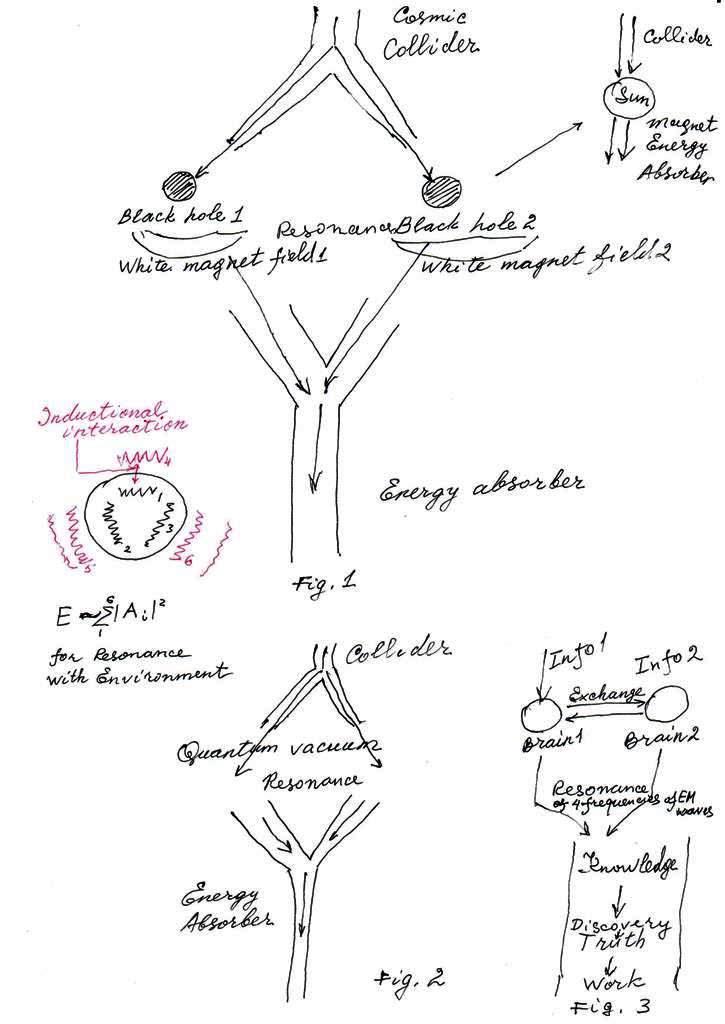 Cosmic
Collider
Collider
Sun
magnet
Energy
Absorber
Black hole 1
Resonance
Black hole 2
White magnet field 1
White magnet field 2
Inductional
interaction
4
1
2
3
5
6
Energy absorber
Fig. 1
E ~ 6∑1 |Ai|²
for Resonance
with Environment
Collider
Quantum vacuum
Resonance
Energy
Absorber
Fig. 2
Info 1
Info 2
Exchange
Brain 1
Brain 2
Resonance
of 4 frequencies of EM
waves
Knowledge
Discovery
Truth
Work
Fig. 3